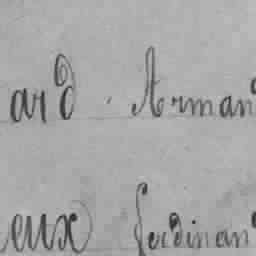 ard. Arman
eux Ferdinan